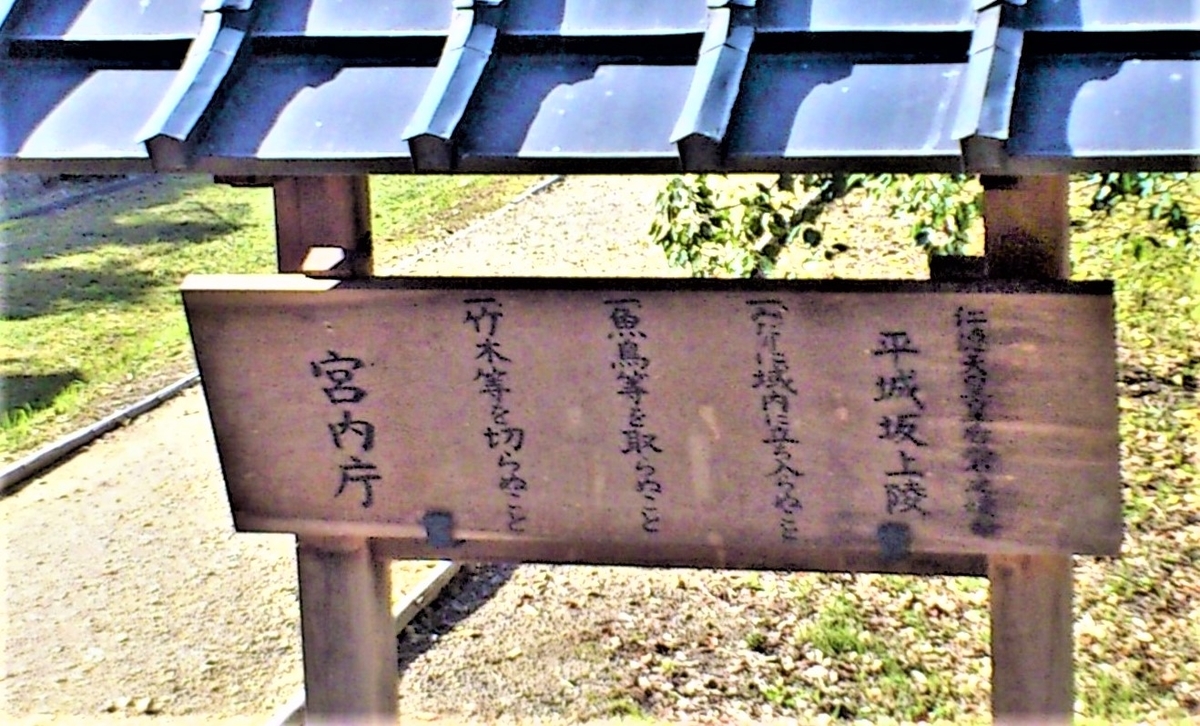 仁徳天皇皇后磐之媛命
平城坂上陵
一みだりに域内に立ち入らぬこと
一魚鳥等を取らぬこと
一竹木等を切らぬこと
宮内庁